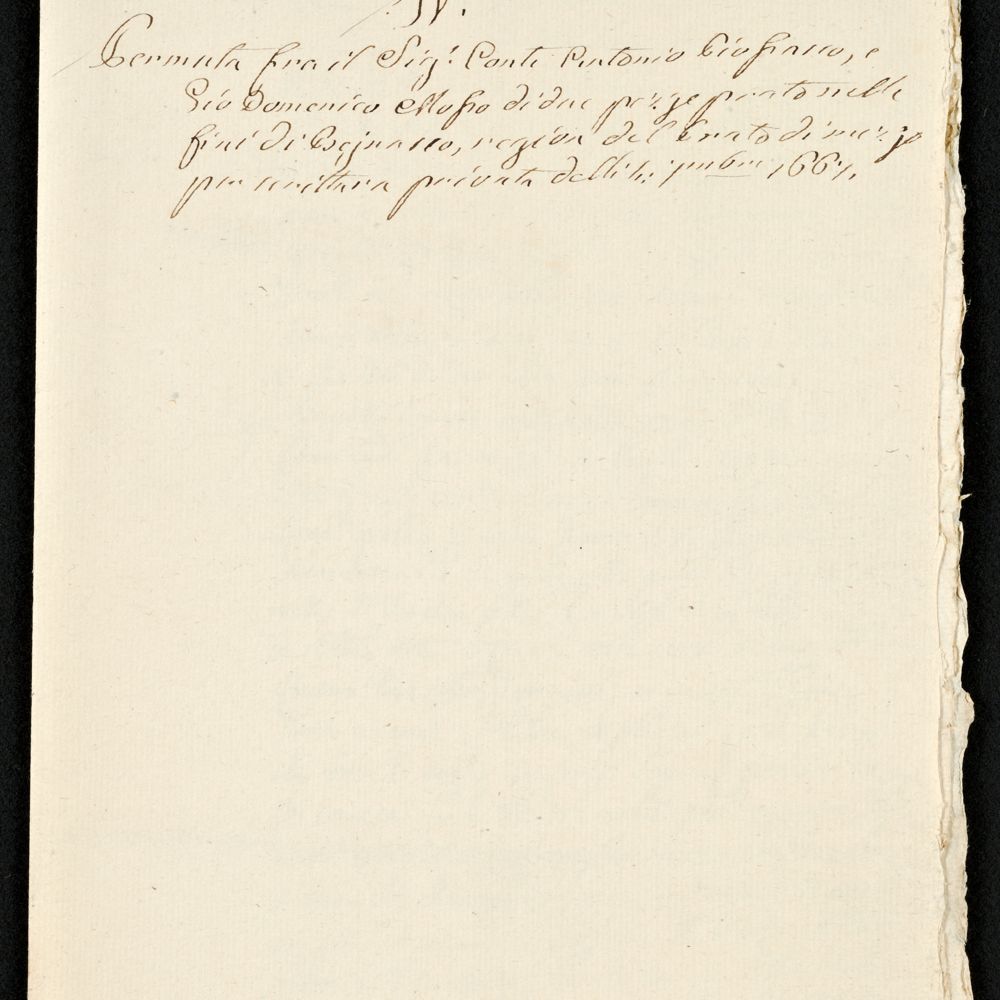 IV.
Permuta fra il Sig.r Conte Antonio Giofranco, e
Gio Domenico Mosso di due pezze prato nelle
fini di Beinasco, region del Prato di mezzo
per scrittura privata delli 1667.